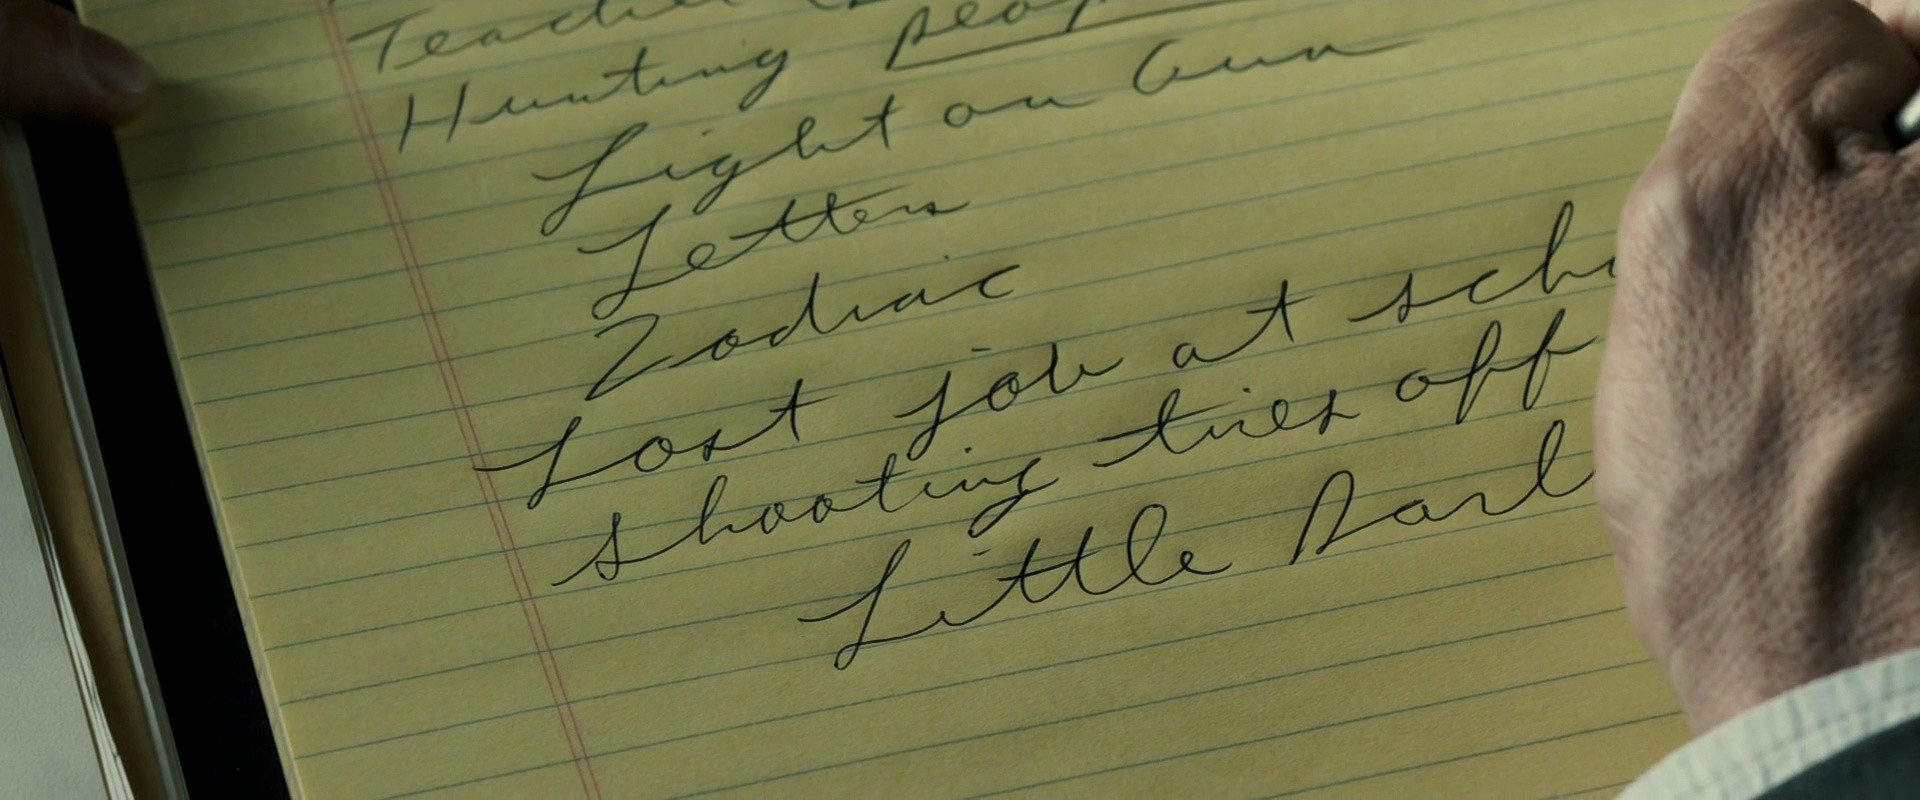 Teacher
Hunting people
Light on Gun
Letters
Zodiac
Lost job at
shooting tires off
Little Darl